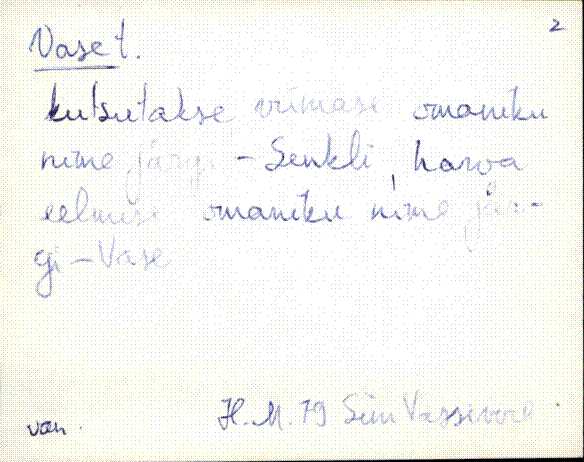 2
Vase t.
kutsutakse viimase omaniku
nime järgi - Senkli, harva
eelmise omaniku nime jär-
gi - Vase
van. H. M. 79 Siim